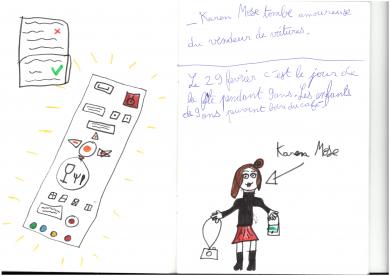 _ Karen Mose tombe amoureuse
du vendeur de voitures.
_ Le 29 février c'est le jour de
la fête pendant 9ans. Les enfants
de 9 ans peuvent boire du café.
Karen Mose